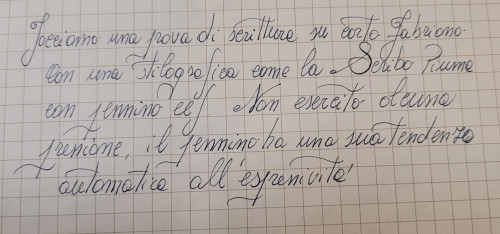 Facciamo una prova di scrittura su carta Fabriano
Con una stilografica come la Scribo Piuma
con pennino ef Non esercito alcuna
pressione, il pennino ha una sua tendenza
automatica all'espressività